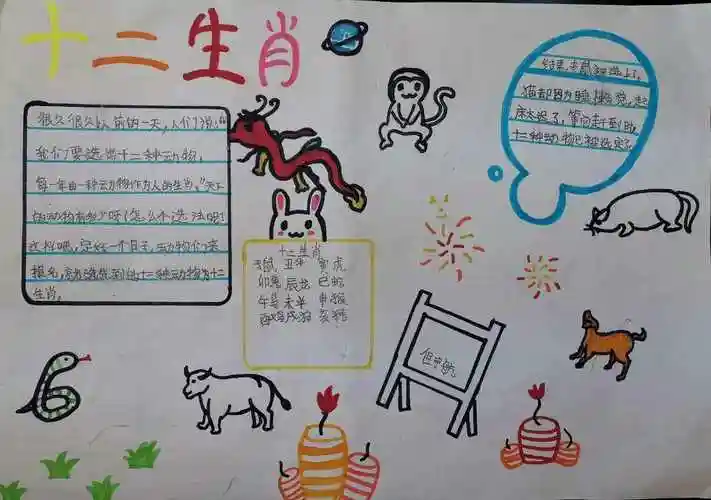 十二生肖
很久很久以前的一天,人们说:“
我们要选出十二种动物,
每一年由一种动物作为人的生肖。”天下
的动物有多少呀!怎么个选法呢?
这样吧,定好一个日子,动物们来
报名,就选先到的十二种动物为十二
生肖。
十二生肖
子鼠 丑牛 寅虎
卯兔 辰龙 巳蛇
午马 未羊 申猴
酉鸡 戌狗 亥猪
结果,老鼠被选上了,
猫却因为睡懒觉,起
床太迟了,等它赶到时,
十二种动物已被选完了。